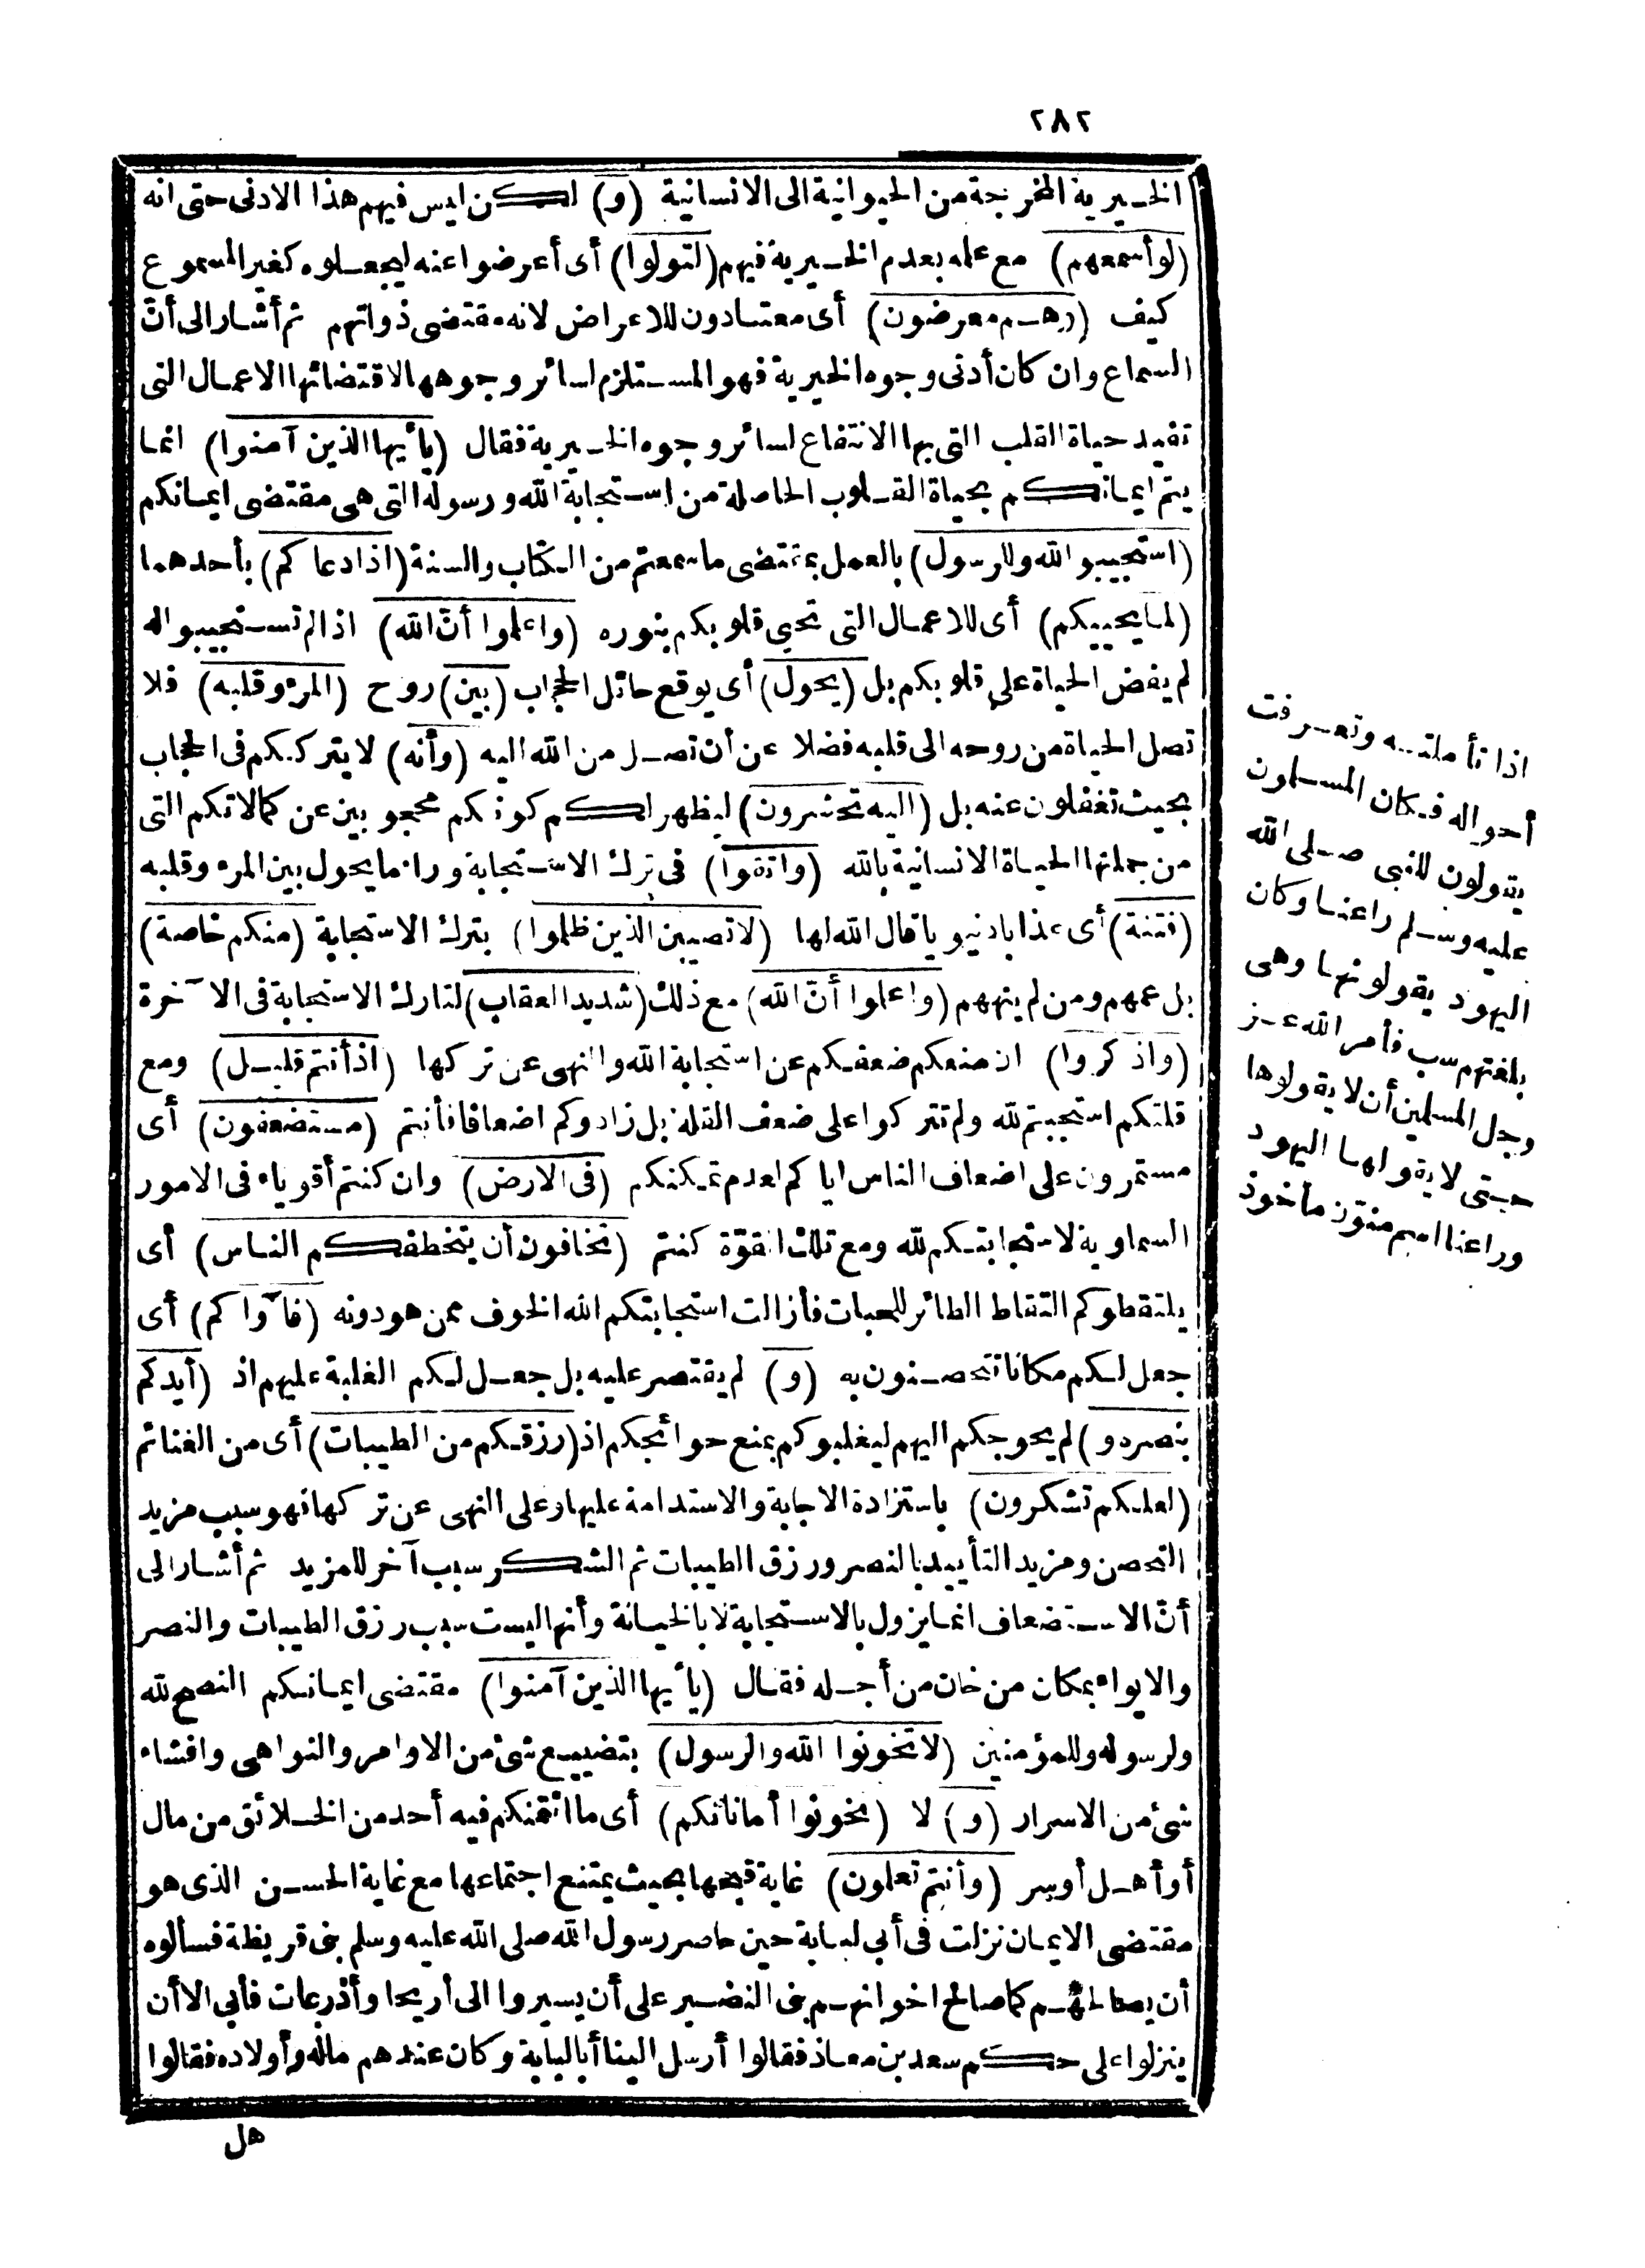 ٢٨٢
الخيرية المخرجة من الحيوانية الى الانسانية (و) لكن ليس فيهم هذا الادنى حتى انه
(لو أسمعهم) مع علمه بعدم الخيرية فيهم (لتولوا) أى أعرضوا عنه ليجعلوه كغير المسموع
كيف (وهم معرضون) أى معتادون للاعراض لانه مقتضى ذواتهم ثم أشار الى أنّ
السماع وان كان أدنى وجوه الخيرية فهو المستلزم لسائر وجوهها لاقتضائها الاعمال التى
تفيد حياة القلب التى بها الانتفاع لسائر وجوه الخيرية فقال (يأيها الذين آمنوا) انما
يتم ايمانكم بحياة القلوب الحاصلة من استجابة الله ورسوله التى هى مقتضى ايمانكم
(استجيبوا لله وللرسول) بالعمل بمقتضى ما سمعتم من الكتاب والسنة (اذا دعاكم) بأحدهما
(لما يحييكم) أى للاعمال التى تحيى قلوبكم بنوره (واعلموا أنّ الله) اذا لم تستجيبوا له
لم يفض الحياة على قلوبكم بل (يحول) أى يوقع حائل الحجاب (بين) روح (المرء وقلبه) فلا
تصل الحياة من روحه الى قلبه فضلا عن أن تصل من الله اليه (وأنه) لا يترككم فى الحجاب
بحيث تغفلون عنه بل (اليه تحشرون) ليظهر لكم كونكم محجوبين عن كمالاتكم التى
من جملتها الحياة الانسانية بالله (واتقوا) فى ترك الاستجابة وراء ما يحول بين المرء وقلبه
(فتنة) أى عذابا دنيويا قال الله لها (لا تصيبن الذين ظلموا) بترك الاستجابة (منكم خاصة)
بل عمهم ومن لم ينههم (واعلموا أنّ الله) مع ذلك (شديد العقاب) لتارك الاستجابة فى الآخرة
(واذكروا) ان منعكم ضعفكم عن استجابة الله والنهى عن تركها (اذ أنتم قليل) ومع
قلتكم استجبتم لله ولم تتركوا على ضعف القلة بل زادوكم اضعافا فأنتم (مستضعفون) أى
مستمرون على اضعاف الناس اياكم لعدم تمكنكم (فى الارض) وان كنتم أقوياء فى الامور
السماوية لاستجابتكم لله ومع تلك القوّة كنتم (تخافون أن يتخطفكم الناس) أى
يلتقطوكم التقاط الطائر للحبات فأزالت استجابتكم الله الخوف ممن هو دونه (فآواكم) أى
جعل لكم مكانا تتحصنون به (و) لم يقتصر عليه بل جعل لكم الغلبة عليهم اذ (أيدكم
بنصره و) لم يحوجكم اليهم ليغلبوكم بمنع حوائجكم اذ (رزقكم من الطيبات) أى من الغنائم
(لعلكم تشكرون) باستزادة الاجابة والاستدامة عليها وعلى النهى عن تركها فهو سبب مزيد
التحصن ومزيد التأييد بالنصر ورزق الطيبات ثم الشكر سبب آخر للمزيد ثم أشار الى
أنّ الاستضعاف انما يزول بالاستجابة لا بالخيانة وأنها ليست سبب رزق الطيبات والنصر
والايواء بمكان من خان من أجله فقال (يأيها الذين آمنوا) مقتضى ايمانكم النصح لله
ولرسوله وللمؤمنين (لا تخونوا الله والرسول) بتضييع شئ من الاوامر والنواهى وافشاء
شئ من الاسرار (و) لا (تخونوا أماناتكم) أى ما ائتمنكم فيه أحد من الخلائق من مال
أو أهل أو سر (وأنتم تعلمون) غاية قبحها بحيث يمتنع اجتماعها مع غاية الحسن الذى هو
مقتضى الايمان نزلت فى أبى لبابة حين حاصر رسول الله صلى الله عليه وسلم بنى قريظة فسألوه
أن يصالحهم كما صالح اخوانهم بنى النضير على أن يسيروا الى أريحا وأذرعات فأبى الا أن
ينزلوا على حكم سعد بن معاذ فقالوا أرسل الينا أبا لبابة وكان عندهم ماله وأولاده فقالوا
هل
اذا تأملته وتعرفت
أحواله فكان المسلمون
يقولون للنبى صلى الله
عليه وسلم راعنا وكان
اليهود يقولونها وهى
بلغتهم سب فأمر الله عز
وجل المسلمين أن لا يقولوها
حتى لا يقولها اليهود
وراعنا اسم منوّن مأخوذ